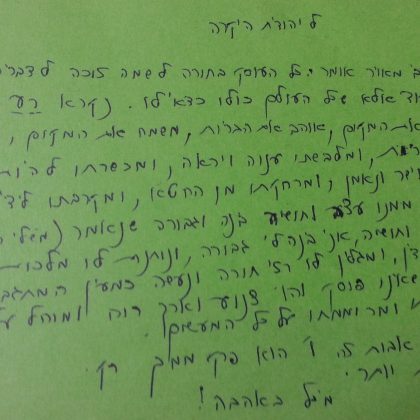 ליהודית היקרה
מאיר אומר: כל העוסק בתורה לשמה זוכה לדברים
אלא שכל העולם כולו כדאי לו. נקרא רֵעַ
את המקום, אוהב את הבריות, משמח את המקום,
ומלבשתו ענוה ויראה, ומכשרתו להיות
ונאמן, ומרחקתו מן החטא, ומקרבתו לידי
ממנו עצה ותושיה בינה וגבורה שנאמר (משלי
ותושיה, אני בינה לי גבורה, ונותנת לו מלכות
ומגלין לו רזי תורה ונעשה כמעין המתגבר
שאינו פוסק והוי צנוע וארך רוח ומוחל על
ומרוממתו על כל המעשים.
אבות זה ו' הוא פרי ממך רק
יותר.
באהבה!